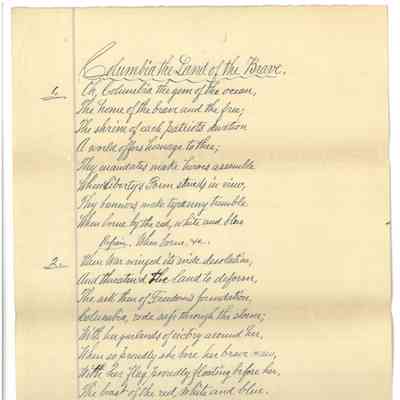 Columbia the Land of the Brave.
1. Oh, Columbia the gem of the ocean,
The home of the brave and the free;
The shrine of each patriot's devotion
A world offers homage to thee;
Thy mandates make heroes assemble
When Liberty's Form stands in view,
Thy banners make tyranny tremble
When borne by the red, white and blue
Refrain. When borne, &c.
2. When War winged its wide desolation,
And threatened the land to deform,
The ark then of Freedom's foundation,
Columbia, rode safe through the storm;
With her garlands of victory around her,
When so proudly she bore her brave crew,
With her flag proudly floating before her,
The boast of the red, white and blue.